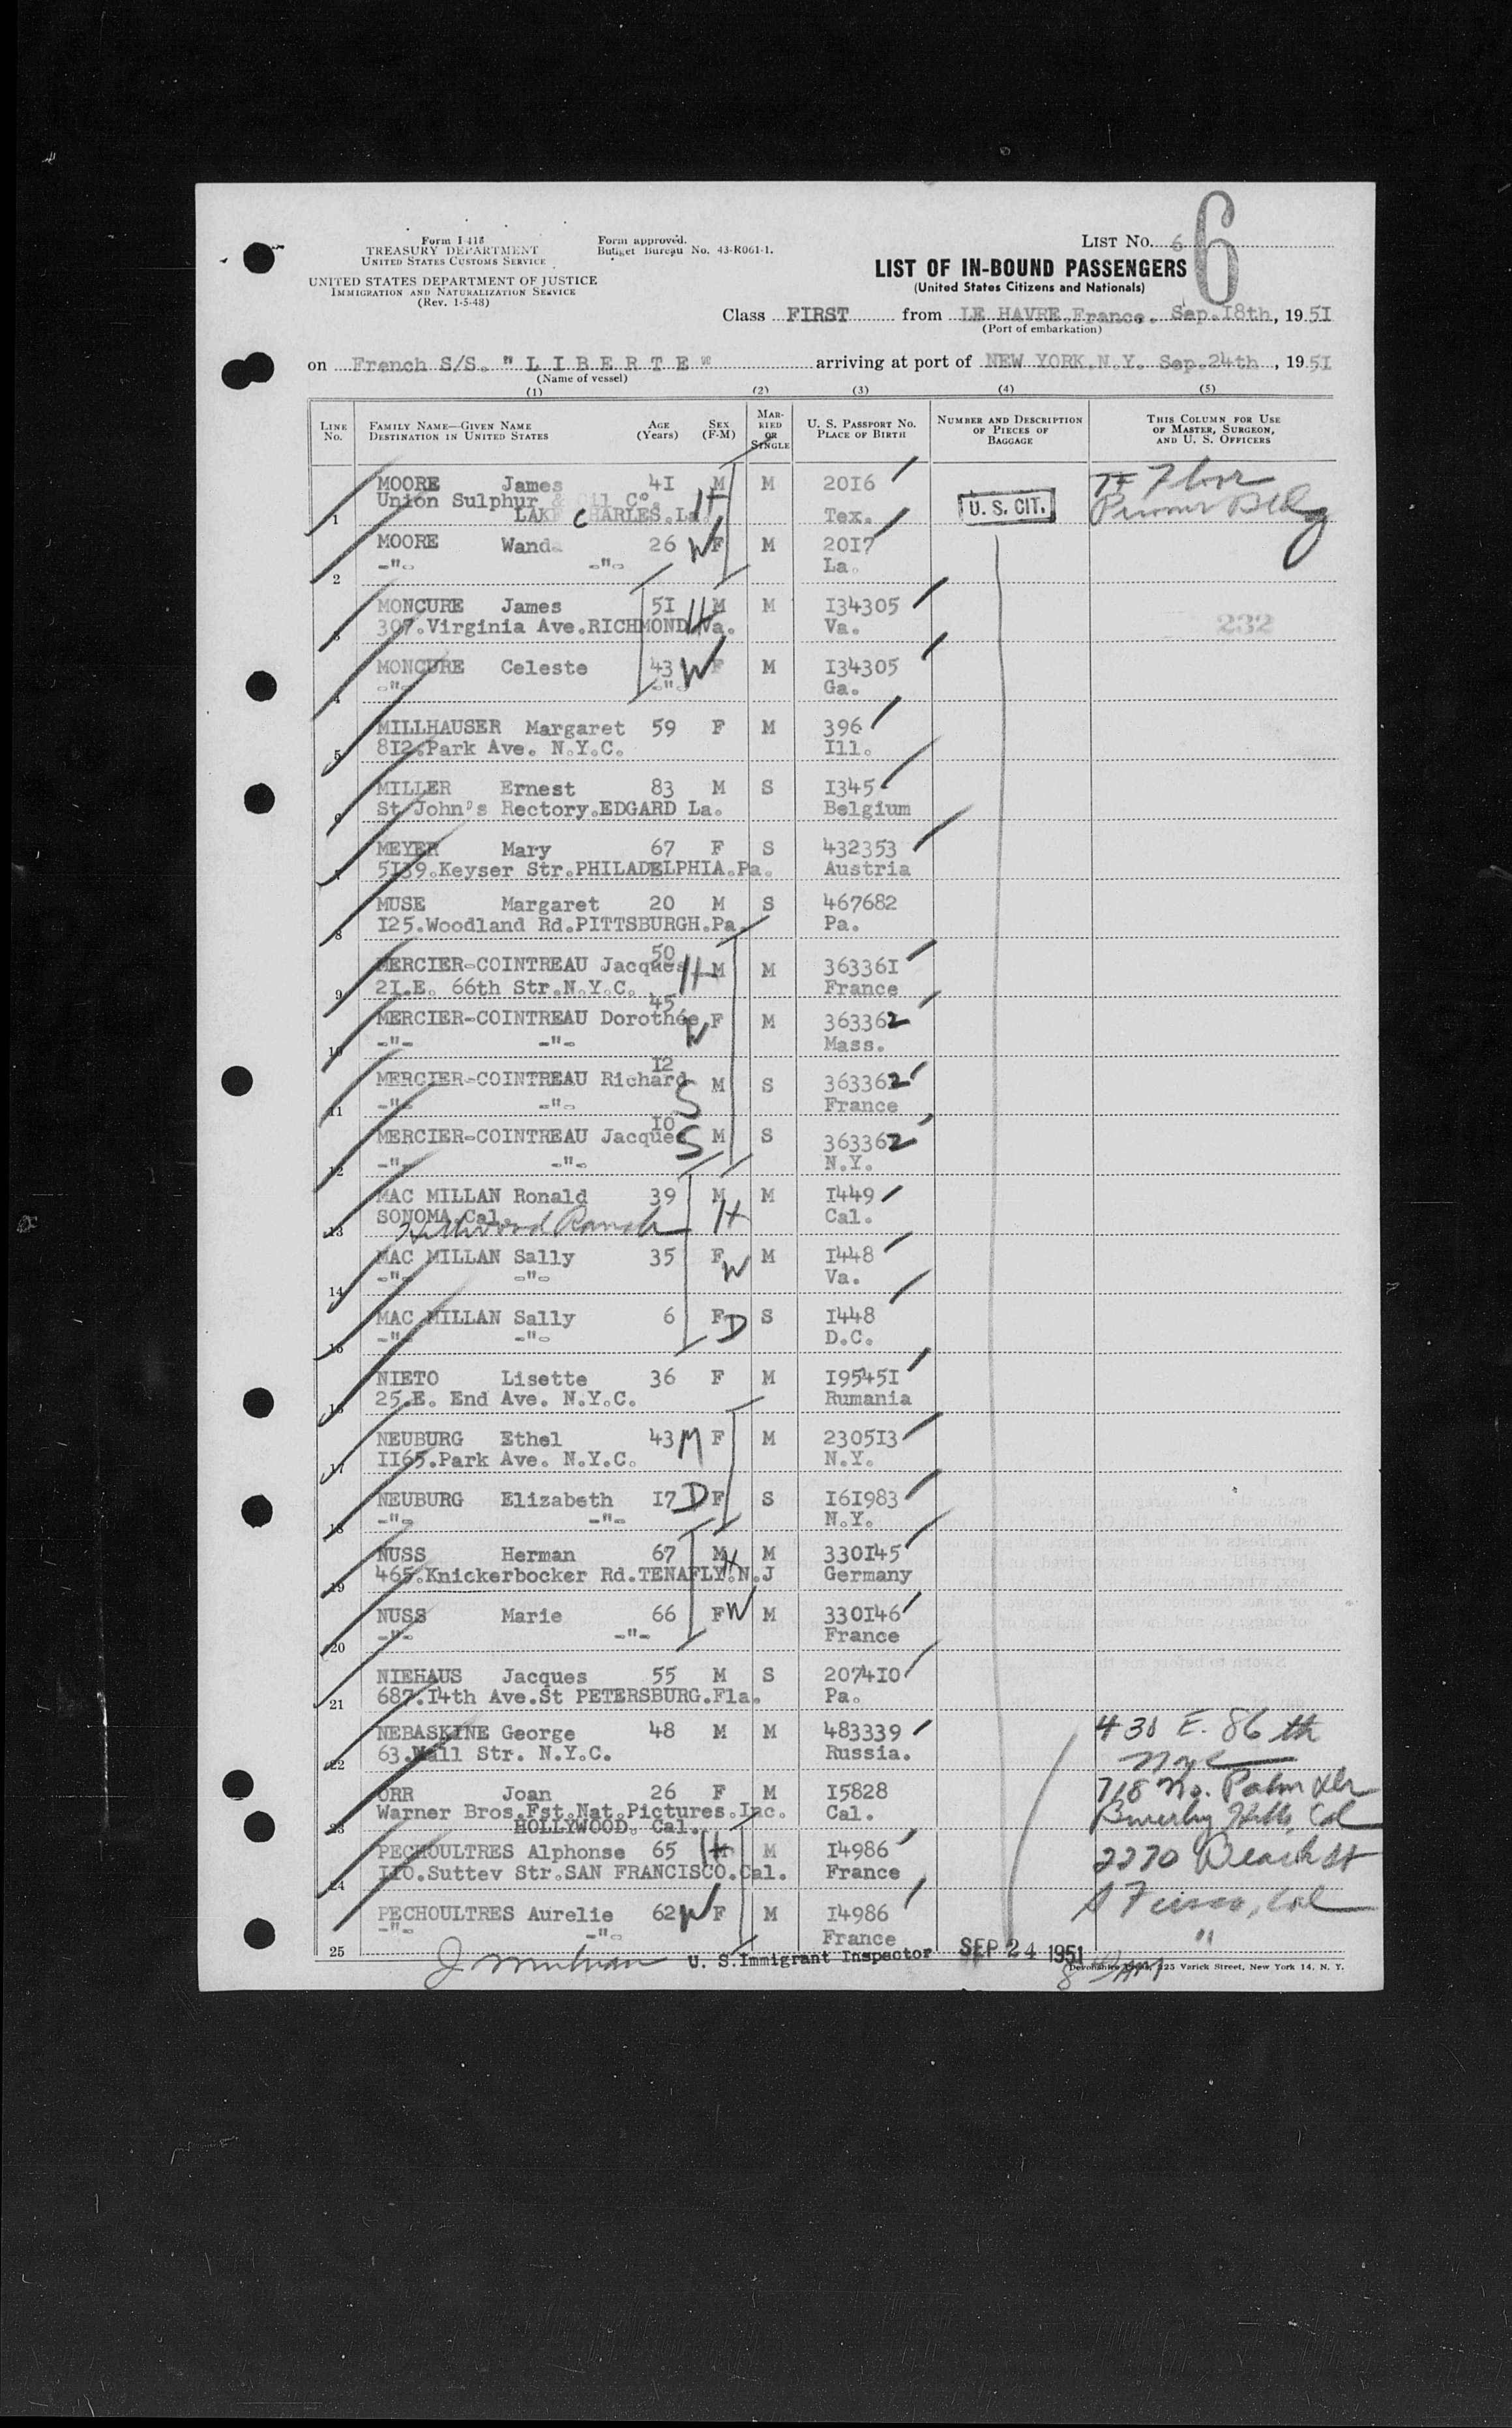 Form I-418
TREASURY DEPARTMENT
UNITED STATES CUSTOMS SERVICE
UNITED STATES DEPARTMENT OF JUSTICE
IMMIGRATION AND NATURALIZATION SERVICE
(Rev. 1-5-48)
Form approved.
Budget Bureau No. 43-R061-1.
LIST No. 6
6
LIST OF IN-BOUND PASSENGERS
(United States Citizens and Nationals)
Class FIRST from LE HAVRE.France. Sep.18th, 1951
(Port of embarkation)
on French S/S. "LIBERTE" arriving at port of NEW YORK.N.Y. Sep.24th, 1951
(Name of vessel)
(1) (2) (3) (4) (5)
LINE No. FAMILY NAME—GIVEN NAME DESTINATION IN UNITED STATES AGE (Years) SEX (F-M) MARRIED OR SINGLE U. S. PASSPORT No. PLACE OF BIRTH NUMBER AND DESCRIPTION OF PIECES OF BAGGAGE THIS COLUMN FOR USE OF MASTER, SURGEON, AND U. S. OFFICERS
MOORE James 41 M H M 2016
Union Sulphur & Oil Co. U. S. CIT.
1 LAKE CHARLES.La. Tex.
MOORE Wanda 26 W F M 2017
2 -"- -"- La.
MONCURE James 51 H M M 134305
3 307.Virginia Ave.RICHMOND.Va. Va. 232
MONCURE Celeste 43 W F M 134305
4 -"- -"- Ga.
MILLHAUSER Margaret 59 F M 396
5 812.Park Ave. N.Y.C. Ill.
MILLER Ernest 83 M S 1345
6 St John's Rectory.EDGARD La. Belgium
MEYER Mary 67 F S 432353
7 5139.Keyser Str.PHILADELPHIA.Pa. Austria
MUSE Margaret 20 M S 467682
8 125.Woodland Rd.PITTSBURGH.Pa. Pa.
MERCIER-COINTREAU Jacques 50 H M M 363361
9 21.E. 66th Str.N.Y.C. France
MERCIER-COINTREAU Dorothée 45 W F M 363362
10 -"- -"- Mass.
MERCIER-COINTREAU Richard 12 S M S 363362
11 -"- -"- France
MERCIER-COINTREAU Jacques 10 S M S 363362
12 -"- -"- N.Y.
MAC MILLAN Ronald 39 M H M 1449
13 SONOMA.Cal. Ranch Cal.
MAC MILLAN Sally 35 F W M 1448
14 -"- -"- Va.
MAC MILLAN Sally 6 F D S 1448
15 -"- -"- D.C.
NIETO Lisette 36 F M 195451
16 25.E. End Ave. N.Y.C. Rumania
NEUBURG Ethel 43 M F M 230513
17 1165.Park Ave. N.Y.C. N.Y.
NEUBURG Elizabeth 17 D F S 161983
18 -"- -"- N.Y.
NUSS Herman 67 M H M 330145
19 465.Knickerbocker Rd.TENAFLY.N.J Germany
NUSS Marie 66 F W M 330146
20 -"- -"- France
NIEHAUS Jacques 55 M S 207410
21 687.14th Ave.St PETERSBURG.Fla. Pa.
NEBASKINE George 48 M M 483339 430 E. 86 th
22 63.Wall Str. N.Y.C. Russia. NYC
ORR Joan 26 F M 15828 718 No. Palm Dr
Warner Bros.Fst.Nat.Pictures.Inc. Cal. Beverly Hills, Cal
23 HOLLYWOOD. Cal.
PECHOULTRES Alphonse 65 H M 14986 2270 Beach St
24 110.Suttev Str.SAN FRANCISCO.Cal. France S Frisco, Cal
PECHOULTRES Aurelie 62 W F M 14986
25 -"- -"- France "
U. S. Immigrant Inspector SEP 24 1951
Devonshire Press, 225 Varick Street, New York 14, N. Y.